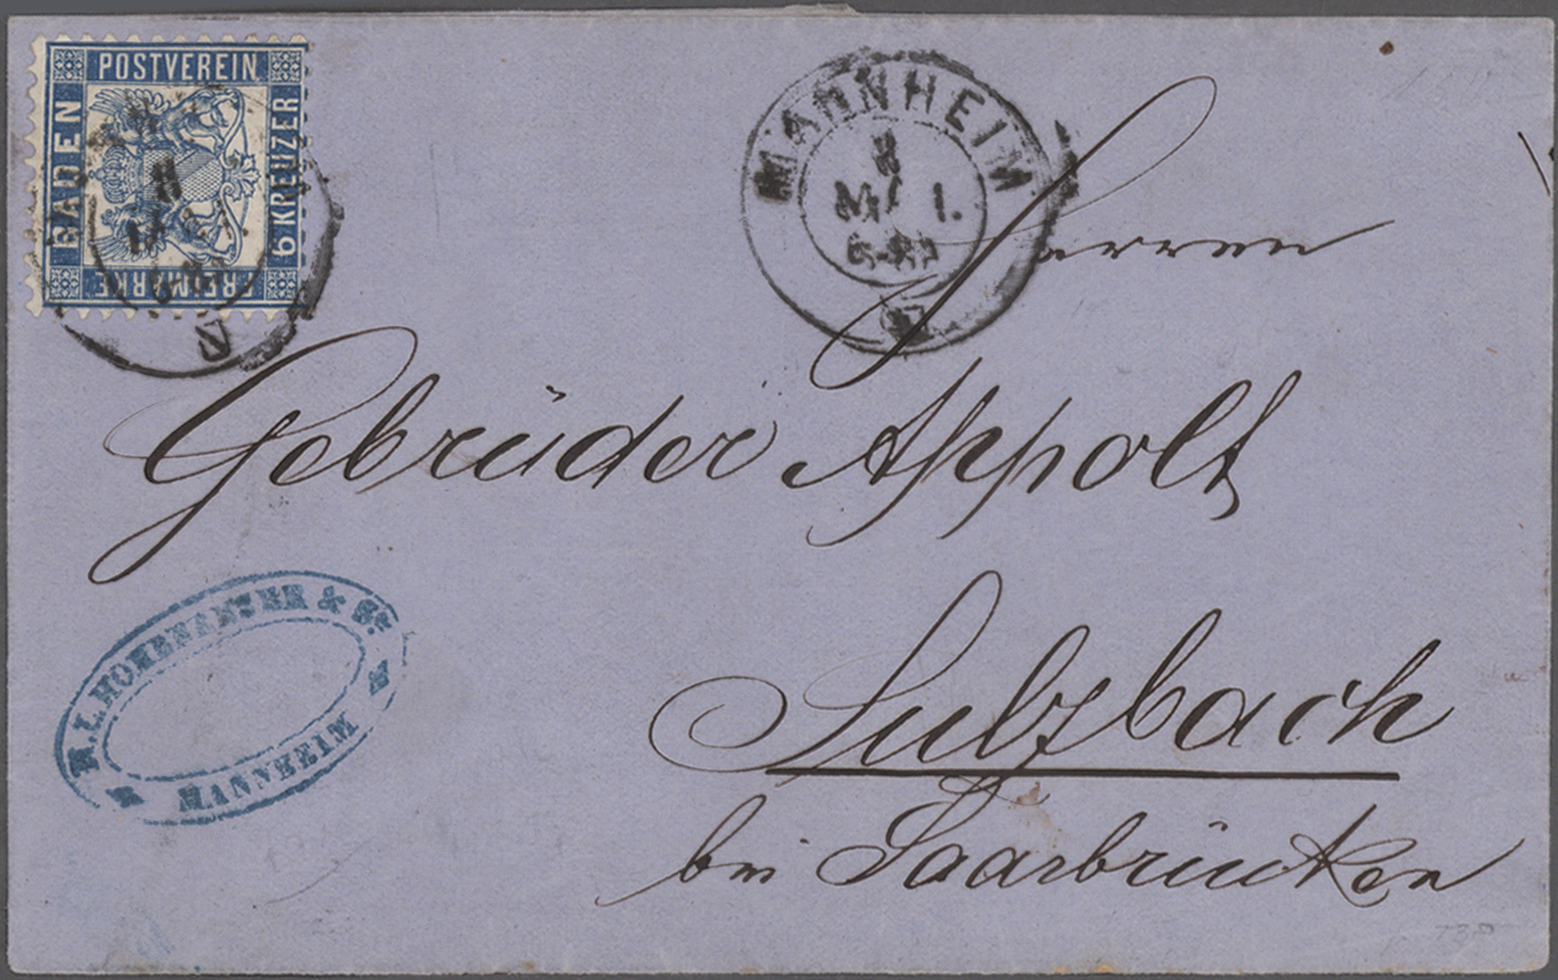 POSTVEREIN
BADEN
6 KREUZER
FREIMARKE
8
V
MANNHEIM
8
Herren
Gebrüder Appolt
Sulzbach
bei Saarbrücken
MANNHEIM